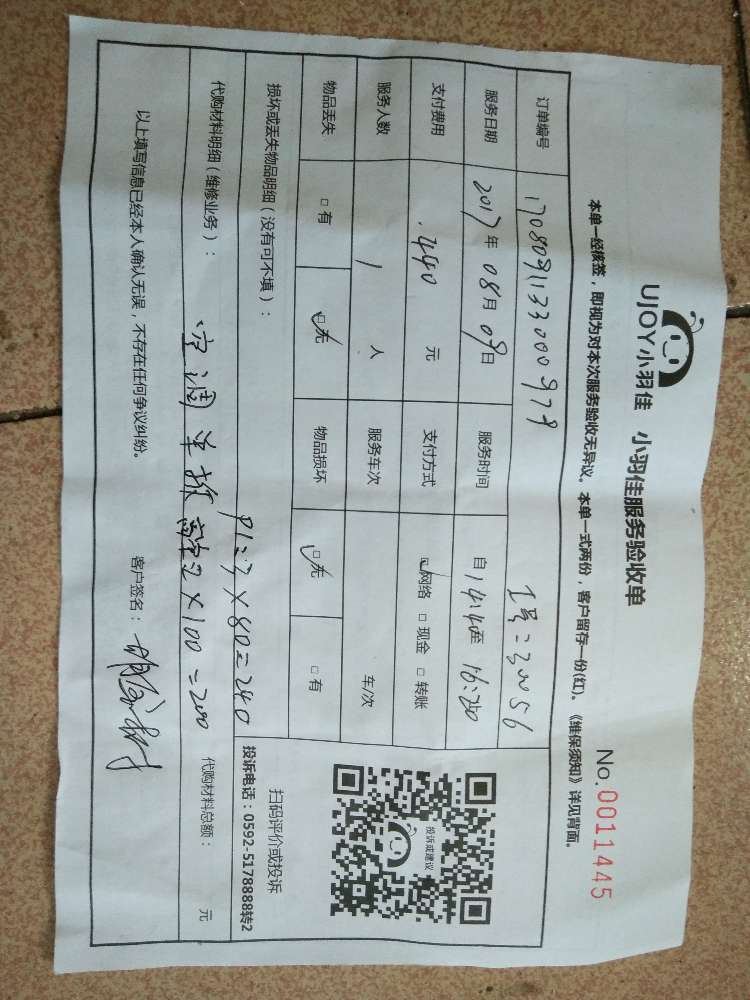 UJOY小羽佳 小羽佳服务验收单
No.0011445
本单一经核签，即视为对本次服务验收无异议。本单一式两份，客户留存一份(红)。《维保须知》详见背面。
订单编号 170809113300979 工号：30056
服务日期 2017年08月09日 服务时间 自14:40至16:20
支付费用 440元 支付方式 网络 现金 转账
服务人数 1人 服务车次 车/次
物品丢失 有 无 物品损坏 无 有
投诉或建议
扫码评价或投诉
投诉电话：0592-5178888转2
损坏或丢失物品明细（没有可不填）：
3×80=240
代购材料明细（维修业务）： 空调 2×100=200 代购材料总额： 元
以上填写信息已经本人确认无误，不存在任何争议纠纷。 客户签名：